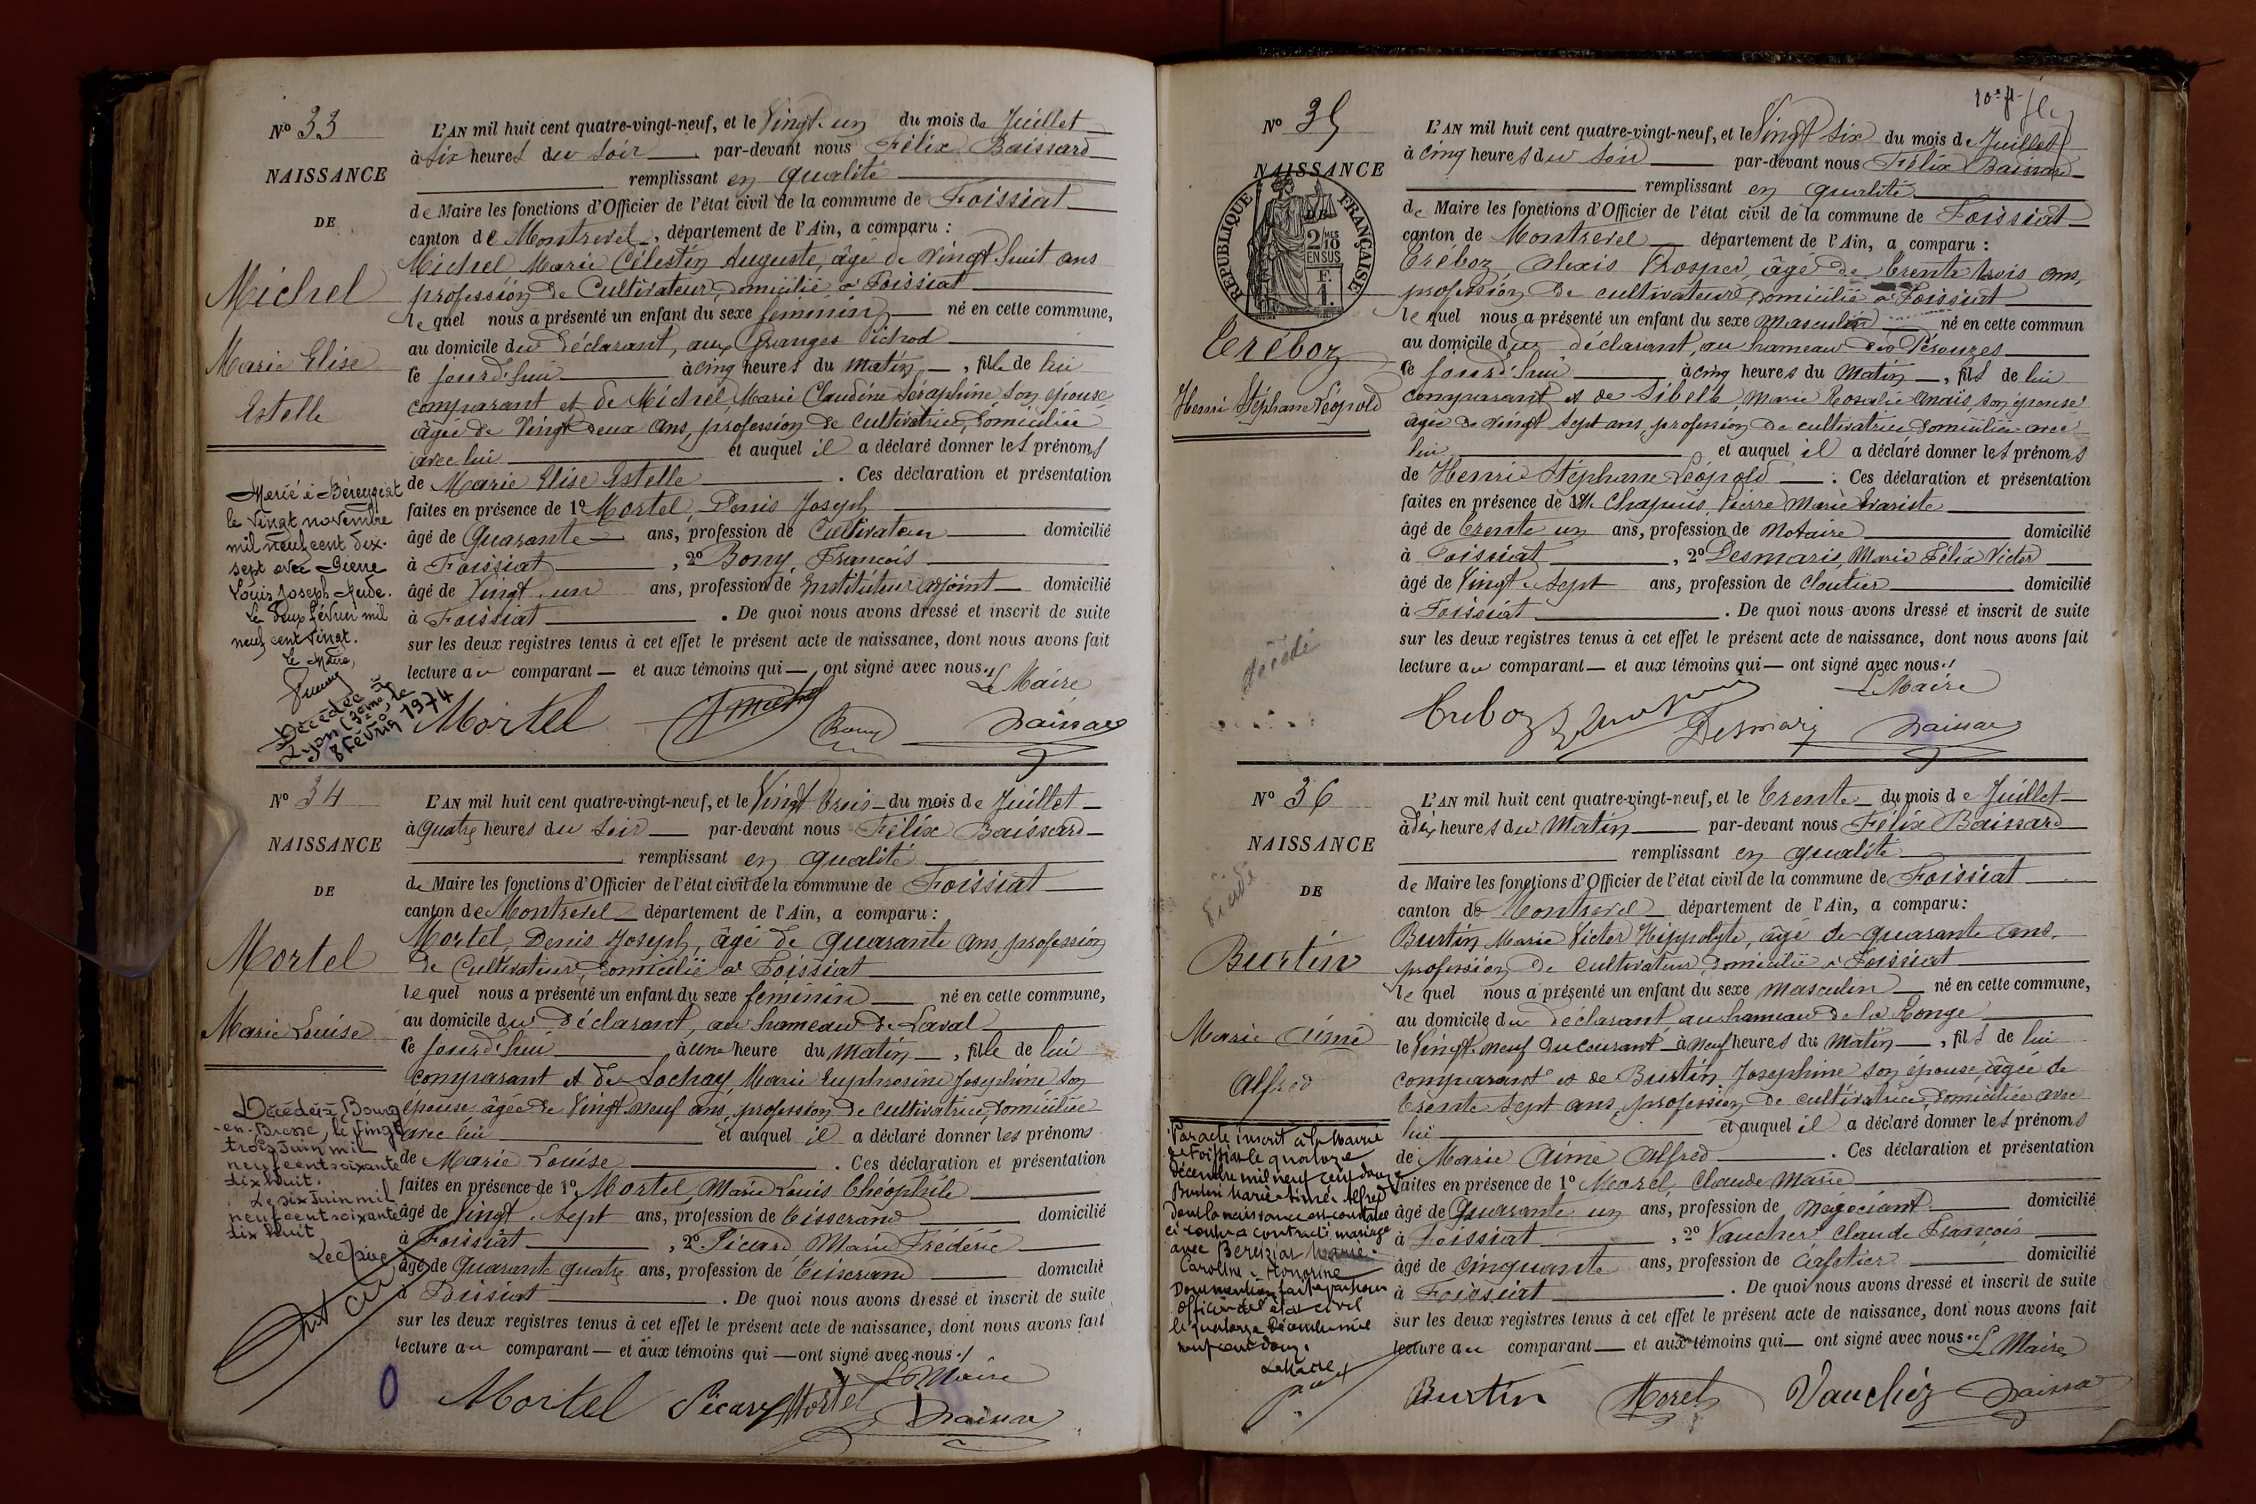 Nº 33
NAISSANCE
DE
Michel
Marie Elise
Estelle
Marié à Béreyziat
le vingt novembre
mil neuf cent dix-
sept avec Pierre
Louis Joseph
Le deux février mil
neuf cent vingt.
Le Maire,
Décédée à
Lyon (3ème) le
8 Février 1974
L'AN mil huit cent quatre-vingt-neuf, et le Vingt un du mois de Juillet
à six heures du soir par-devant nous Félix Baissard
remplissant en qualité
de Maire les fonctions d'Officier de l'état civil de la commune de Foissiat
canton de Montrevel, département de l'Ain, a comparu :
Michel Marie Célestin Auguste, âgé de vingt huit ans
profession de Cultivateur, domicilié à Foissiat
lequel nous a présenté un enfant du sexe féminin né en cette commune,
au domicile du déclarant, aux Granges Pichod
ce jourd'hui à cinq heures du matin, fille de lui
comparant et de Michel, Marie Claudine Séraphine son épouse
âgée de Vingt deux ans, profession de cultivatrice, domiciliée
avec lui et auquel il a déclaré donner les prénoms
de Marie Elise Estelle. Ces déclaration et présentation
faites en présence de 1º Mortel, Denis Joseph
âgé de Quarante ans, profession de Cultivateur domicilié
à Foissiat, 2º Bony, François
âgé de Vingt un ans, profession de Instituteur adjoint domicilié
à Foissiat. De quoi nous avons dressé et inscrit de suite
sur les deux registres tenus à cet effet le présent acte de naissance, dont nous avons fait
lecture au comparant et aux témoins qui ont signé avec nous./
Le Maire
Mortel Bony Baissard
Nº 34
NAISSANCE
DE
Mortel
Marie Louise
Décédée à Bourg
-en-Bresse, le vingt
trois Juin mil
neuf cent soixante
dix huit.
Le six Juin mil
neuf cent soixante
dix huit
L'AN mil huit cent quatre-vingt-neuf, et le Vingt trois du mois de Juillet
à quatre heures du soir par-devant nous Félix Baissard
remplissant en qualité
de Maire les fonctions d'Officier de l'état civil de la commune de Foissiat
canton de Montrevel département de l'Ain, a comparu :
Mortel, Denis Joseph, âgé de quarante ans, profession
de Cultivateur, domicilié à Foissiat
lequel nous a présenté un enfant du sexe féminin né en cette commune,
au domicile du déclarant, au hameau de Laval
ce jourd'hui à une heure du matin, fille de lui
comparant et de Lochay Marie Euphrosine Joséphine son
épouse âgée de Vingt neuf ans, profession de cultivatrice, domiciliée
avec lui et auquel il a déclaré donner les prénoms
de Marie Louise. Ces déclaration et présentation
faites en présence de 1º Mortel, Marie Louis Théophile
âgé de Vingt sept ans, profession de Tisserand domicilié
à Foissiat, 2º Picard Marie Frédéric
âgé de Quarante quatre ans, profession de Tisserand domicilié
à Foissiat. De quoi nous avons dressé et inscrit de suite
sur les deux registres tenus à cet effet le présent acte de naissance, dont nous avons fait
lecture au comparant et aux témoins qui ont signé avec nous./
Le Maire
Mortel Picard Mortel Baissard
10e f
Nº 35
NAISSANCE
RÉPUBLIQUE FRANÇAISE
2 MES 10 EN SUS
Tréboz
Henri Stéphane Léopold
décédé
L'AN mil huit cent quatre-vingt-neuf, et le Vingt six du mois de Juillet
à cinq heures du soir par-devant nous Félix Baissard
remplissant en qualité
de Maire les fonctions d'Officier de l'état civil de la commune de Foissiat
canton de Montrevel département de l'Ain, a comparu :
Tréboz, Alexis Prosper, âgé de trente trois ans,
profession de cultivateur, domicilié à Foissiat
lequel nous a présenté un enfant du sexe masculin né en cette commun
au domicile du déclarant, au hameau des Perouzes
ce jourd'hui à cinq heures du matin, fils de lui
comparant et de Sibelle Marie Rosalie Anaïs, son épouse
âgée de vingt sept ans, profession de cultivatrice domiciliée avec
lui et auquel il a déclaré donner les prénoms
de Henri Stéphane Léopold : Ces déclaration et présentation
faites en présence de 1º Chapuis, Pierre Marie Evariste
âgé de trente un ans, profession de Notaire domicilié
à Foissiat, 2º Desmaris, Marie Félix Victor
âgé de Vingt sept ans, profession de cloutier domicilié
à Foissiat. De quoi nous avons dressé et inscrit de suite
sur les deux registres tenus à cet effet le présent acte de naissance, dont nous avons fait
lecture au comparant et aux témoins qui ont signé avec nous./
Le Maire
Treboz Desmaris Baissard
Nº 36
NAISSANCE
DE
Burtin
Marie Aimé
Alfred
Par acte inscrit à la Mairie
de Foissiat le quatorze
décembre mil neuf cent douze
Burtin Marie Aimé Alfred
dont la naissance est constatée
ci contre a contracté mariage
avec Bereiziat Marie
Caroline Honorine
Dont mention faite par nous
officier de l'état civil
le quatorze Décembre mil
neuf cent douze.
Le Maire
L'AN mil huit cent quatre-vingt-neuf, et le Trente du mois de Juillet
à dix heures du Matin par-devant nous Félix Baissard
remplissant en qualité
de Maire les fonctions d'Officier de l'état civil de la commune de Foissiat
canton de Montrevel département de l'Ain, a comparu :
Burtin Marie Victor Hippolyte, âgé de quarante ans,
profession de Cultivateur, domicilié à Foissiat
lequel nous a présenté un enfant du sexe masculin né en cette commune,
au domicile du déclarant au hameau de la Ronge
le Vingt neuf du courant à neuf heures du Matin, fils de lui
comparant et de Burtin, Josephine son épouse, âgée de
trente sept ans, profession de cultivatrice, domiciliée avec
lui et auquel il a déclaré donner les prénoms
de Marie Aimé Alfred. Ces déclaration et présentation
faites en présence de 1º Morel, Claude Marie
âgé de Quarante un ans, profession de Négociant domicilié
à Foissiat, 2º Vaucher Claude François
âgé de Cinquante ans, profession de Cafetier domicilié
à Foissiat. De quoi nous avons dressé et inscrit de suite
sur les deux registres tenus à cet effet le présent acte de naissance, dont nous avons fait
lecture au comparant et aux témoins qui ont signé avec nous./ Le Maire
Burtin Morel Vauchéz Baissard